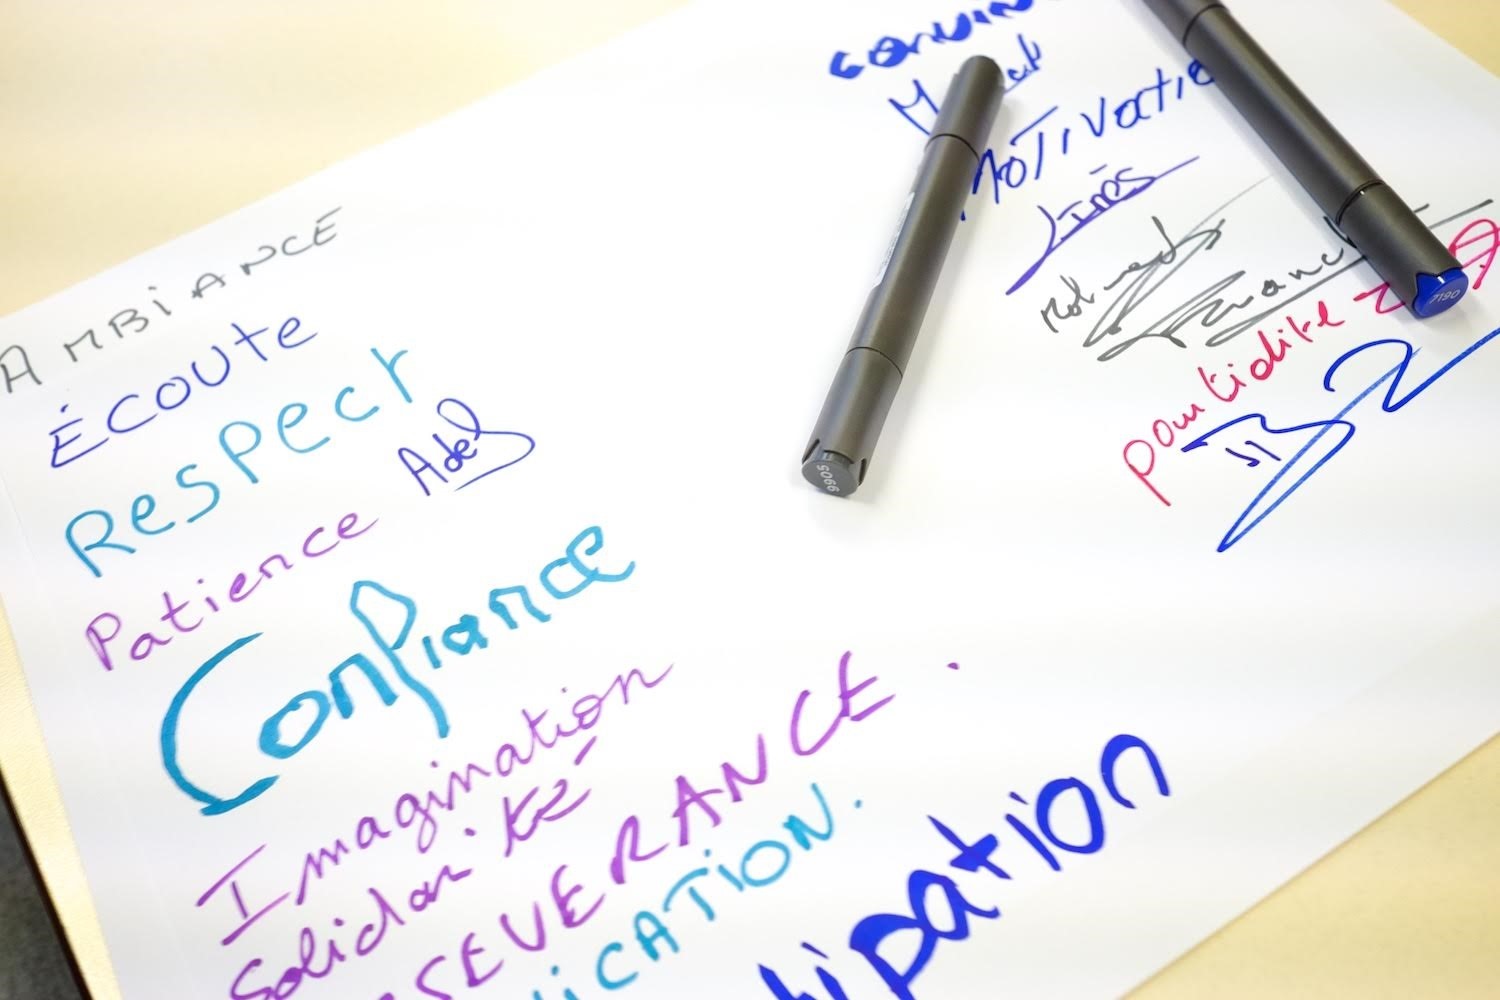 AMBIANCE
ÉCOUTE
Respect
Adel
Patience
Confiance
Imagination
Solidarité
SEVERANCE.
ICATION.
ipation
convin
MOTIVATIO
Linès
Mohmed
pontidilité
7190
9099